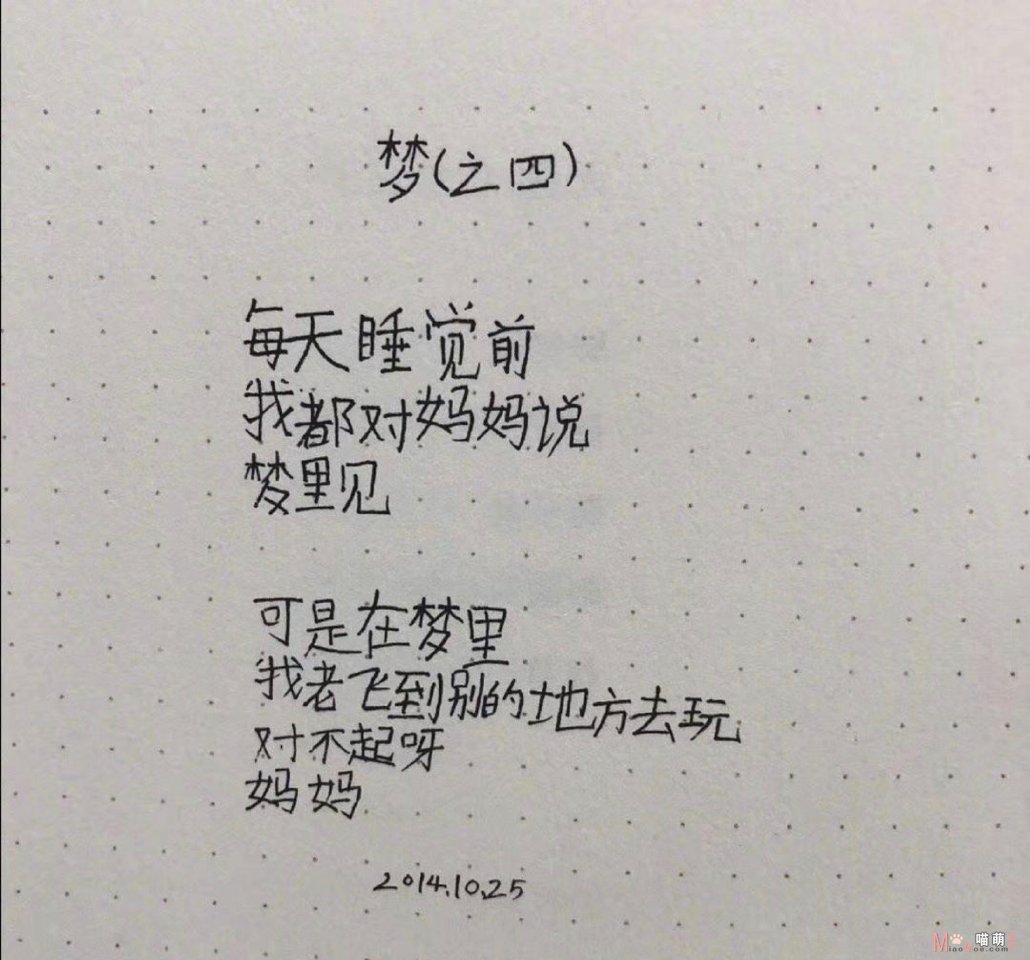 梦(之四)
每天睡觉前
我都对妈妈说
梦里见
可是在梦里
我老飞到别的地方去玩
对不起呀
妈妈
2014.10.25
喵萌